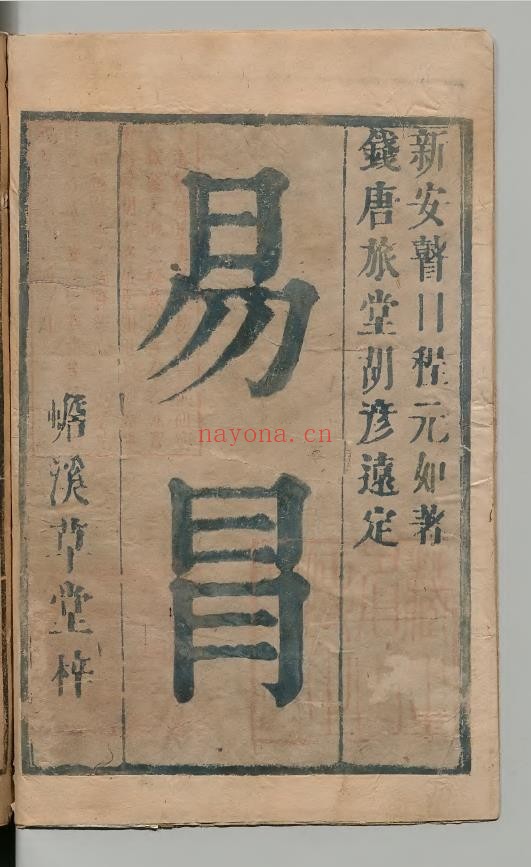 新安瞽目程元如著
錢唐旅堂胡彦遠定
易冐
溪草堂梓
nayona.cn